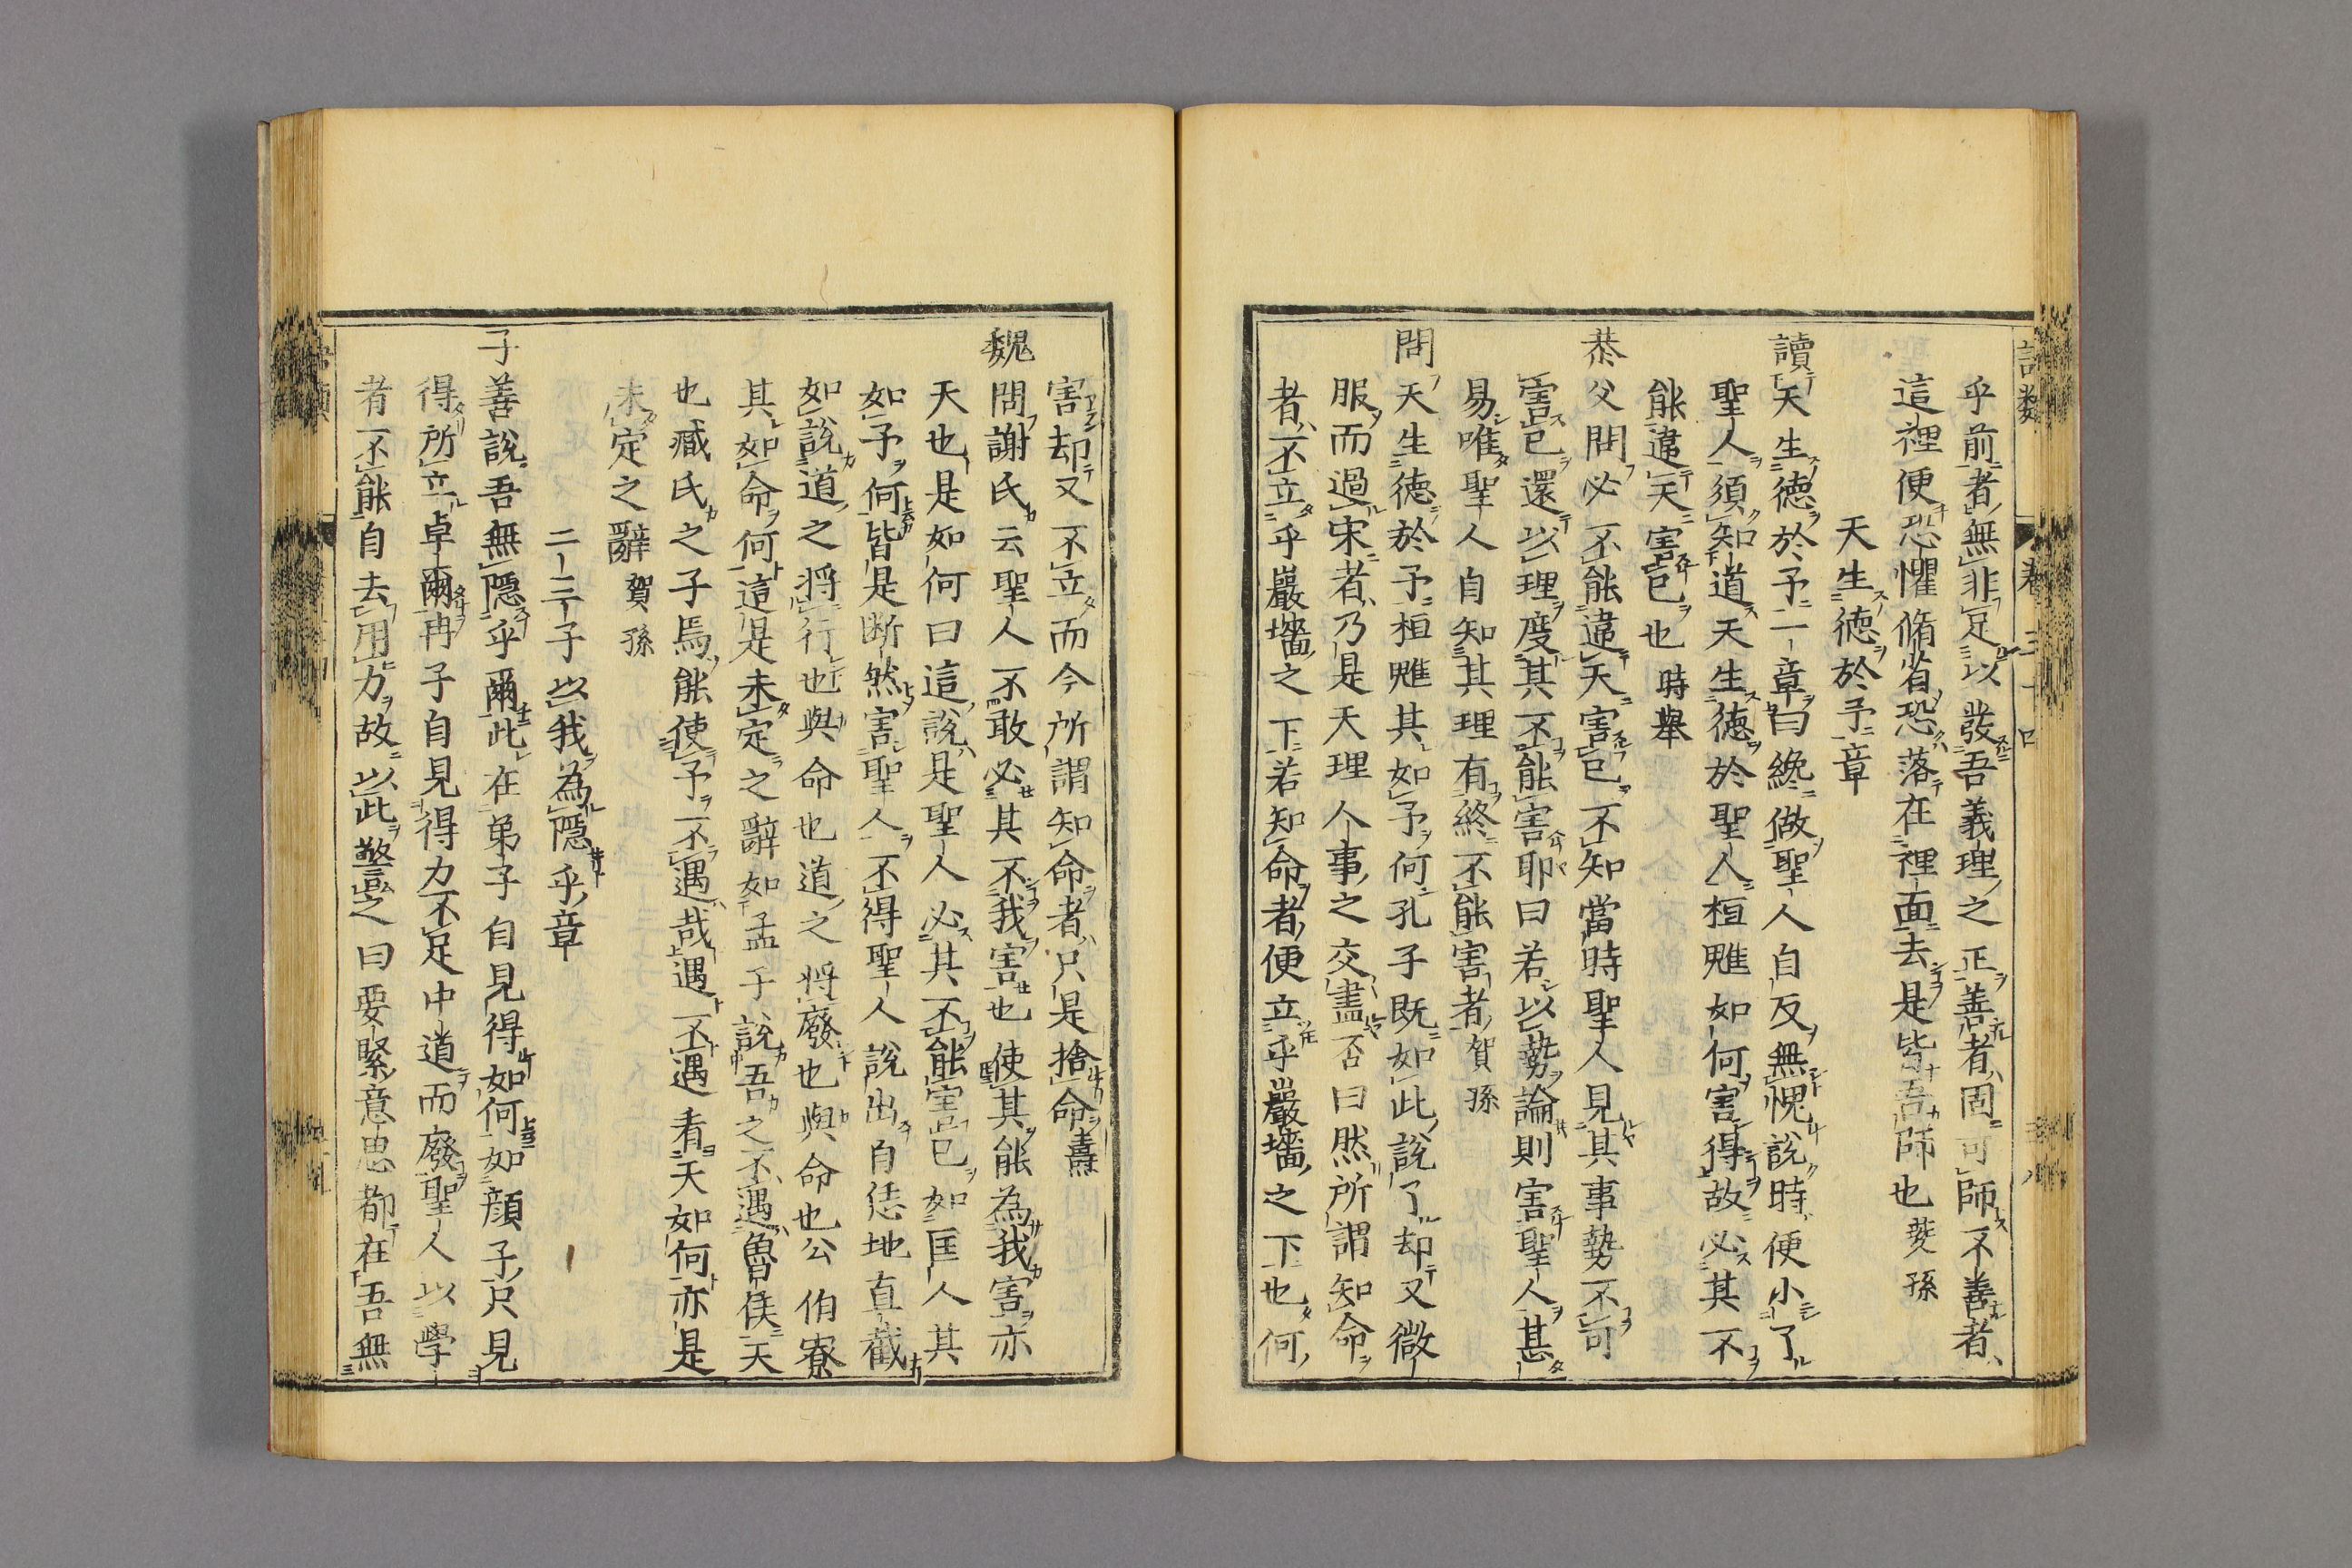 乎前者無非足以發吾義理之正善者固可師不善者
這裡便恐懼脩省恐落在裡面去是皆吾師也 㷫孫
天生德於予章
讀天生德於予一章曰纔做聖人自反無愧說時便小了
聖人須知道天生德於聖人桓魋如何害得故必其不
能違天害己也 時舉
恭父問必不能違天害己不知當時聖人見其事勢不可
害己還以理度其不能害耶曰若以勢論則害聖人甚
易唯聖人自知其理有終不能害者 賀孫
問天生德於予桓魋其如予何孔子既如此說了却又微
服而過宋者乃是天理人事之交盡否曰然所謂知命
者不立乎巖墻之下若知命者便立乎巖墻之下也何
害却又不立而今所謂知命者只是捨命 燾
魏問謝氏云聖人不敢必其不我害也使其能為我害亦
天也是如何曰這說是聖人必其不能害己如匡人其
如予何皆是断然害聖人不得聖人說出自恁地直截
如說道之將行也與命也道之將廢也與命也公伯寮
其如命何這是未定之辭如孟子說吾之不遇魯侯天
也臧氏之子焉能使予不遇哉遇不遇看天如何亦是
未定之辭 賀孫
二三子以我為隱乎章
子善說吾無隱乎爾此在弟子自見得如何如顔子只見
得所立卓爾冉子自見得力不足中道而廢聖人以學
者不能自去用力故以此警之曰要緊意思都在吾無